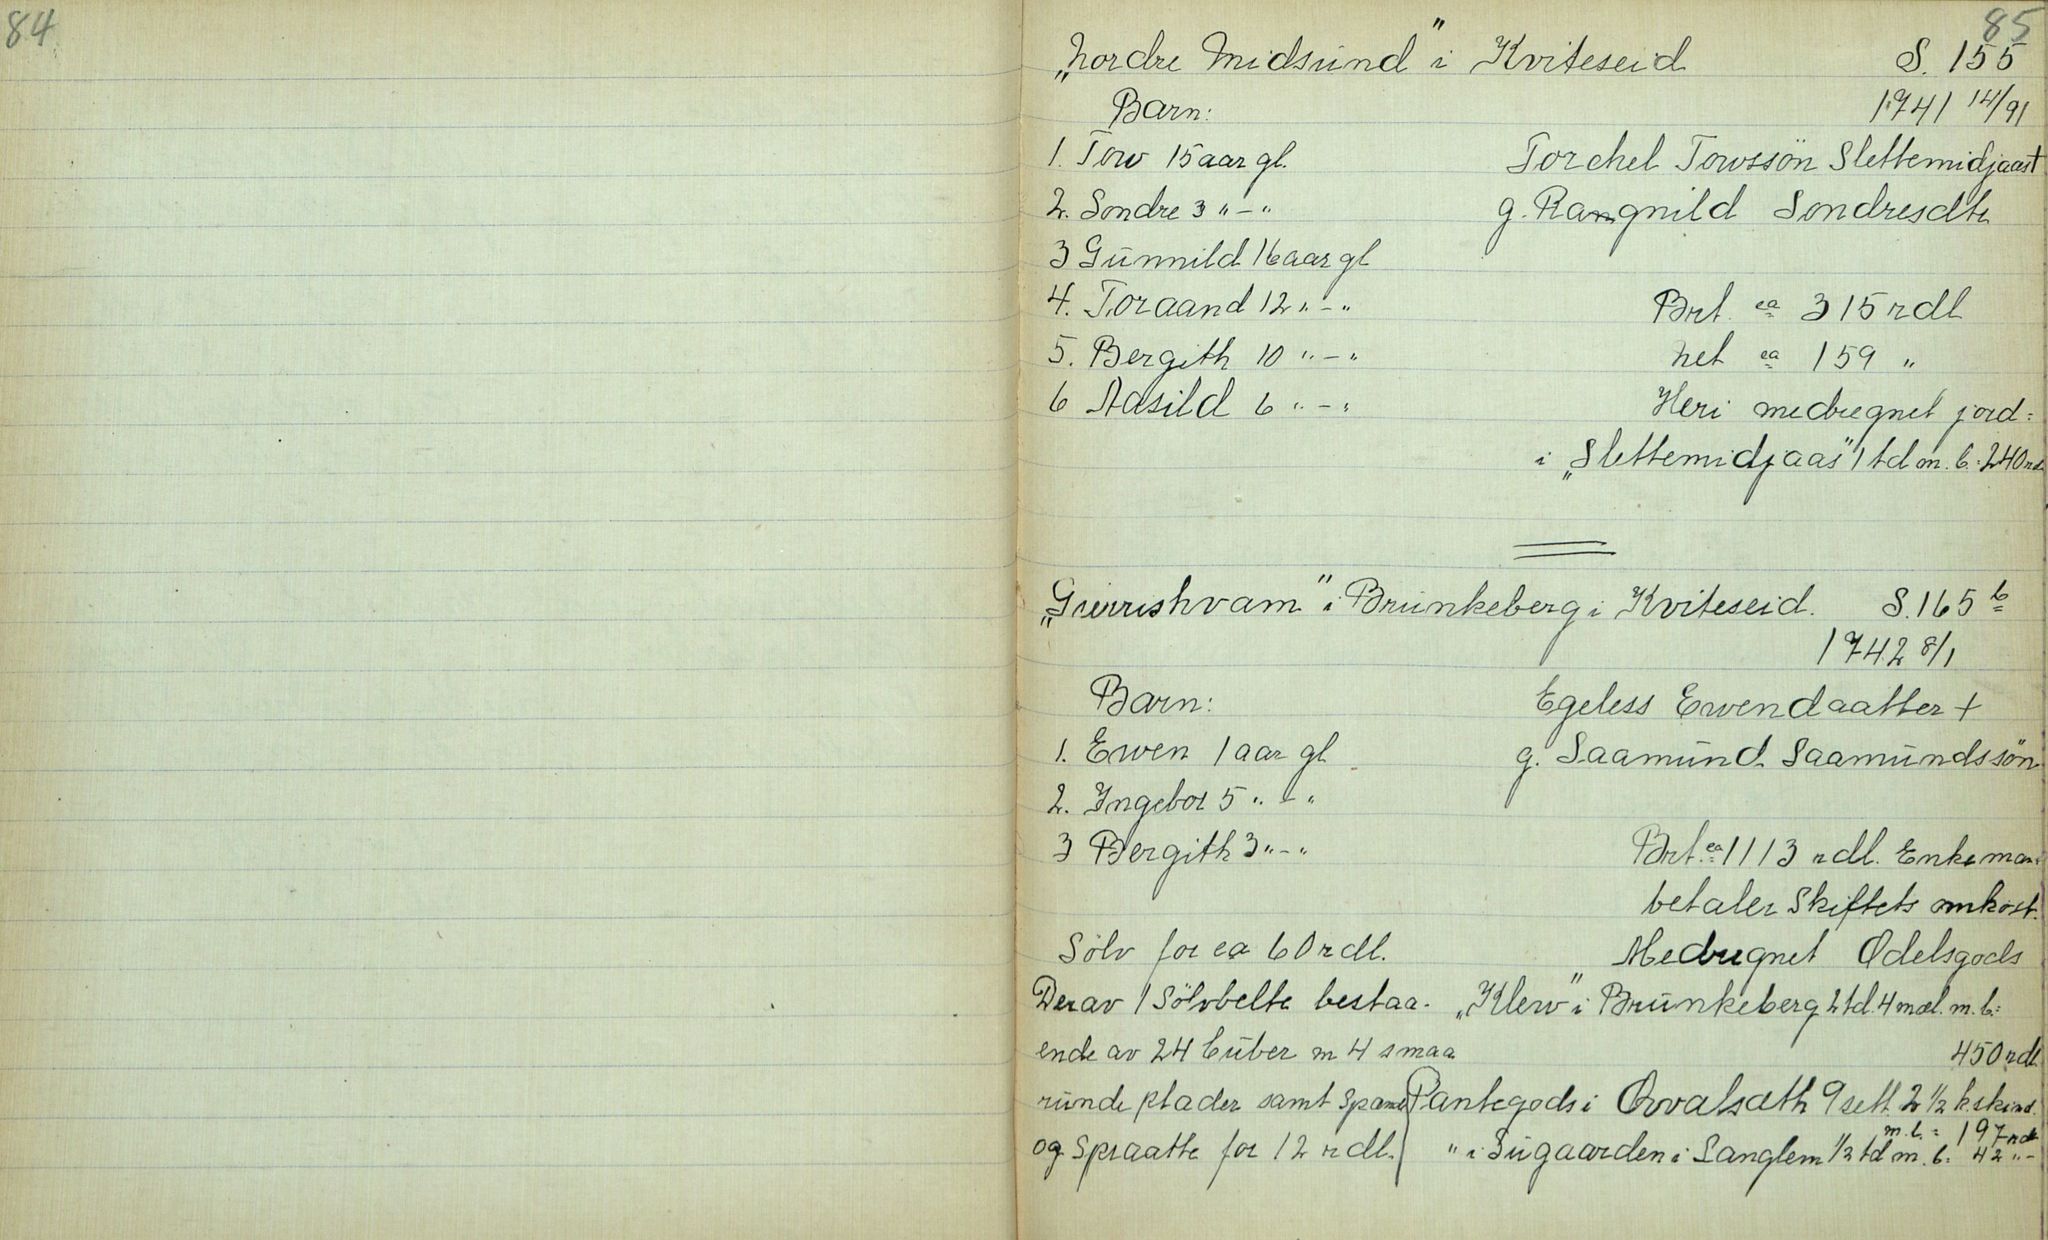 84
85
„Nordre Midsund" i Kviteseid S. 155
Barn: 1741 14/91
1. Tow 15 aar gl. Torchel Towssön Slettemidjaas†
2. Sondre 3 „ – „ g. Rangnild Sondresdtr
3 Gunnild 16 aar gl
4. Toraand 12 „ – „ Brt. ca 315 rdl
5. Bergith 10 „ – „ net ca 159 „
6 Aasild 6 „ – „ Heri medregnet jord=
i „Slettemidjaas" 1 td m. b. = 240 rd
„Gierrishvam" i Brunkeberg i Kviteseid. S. 165 b
1742 8/1
Barn: Egeless Ewendaatter +
1. Ewen 1 aar gl g. Saamund Saamundssön
2. Ingebor 5 „ – „
3 Bergith 3 „ – „ Brt. ca 1113 rdl. Enkeman
betaler Skiftets omkost.
Sölv for ca 60 rdl. Medregnet Odelsgods
Derav 1 Sölvbelte bestaa- „Klew" i Brunkeberg 2 td. 4 mæl. m. b. =
ende av 24 Cuber m 4 smaa 450 rdl
runde plader samt Spænde Pantegods i Qvalsæth 9 sett. 2 1/2 k.skind.
m. b. = 197 rdl
og Spraatte for 12 rdl. „ i Sugaarden i Langlem 1/2 td m. b. = 42 „ –